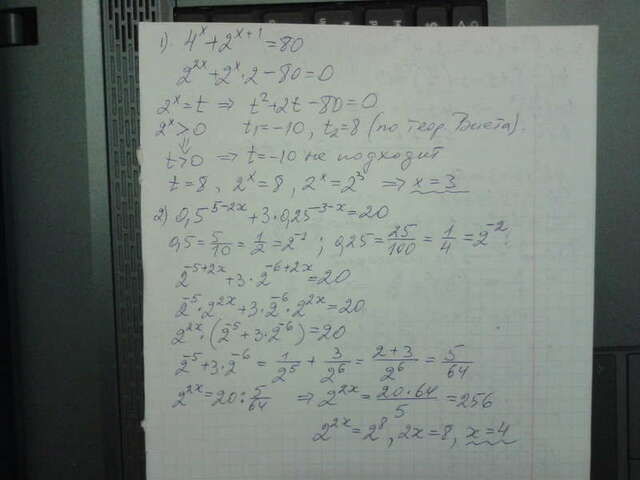 1). 4^x + 2^{x+1} = 80
2^{2x} + 2^x · 2 - 80 = 0
2^x = t ⇒ t² + 2t - 80 = 0
2^x > 0 t₁ = -10, t₂ = 8 (по теор. Виета).
⇓
t > 0 ⇒ t = -10 не подходит
t = 8, 2^x = 8, 2^x = 2^3 ⇒ x = 3
2) 0,5^{5-2x} + 3 · 0,25^{-3-x} = 20
0,5 = 5/10 = 1/2 = 2^{-1}; 0,25 = 25/100 = 1/4 = 2^{-2}.
2^{-5+2x} + 3 · 2^{-6+2x} = 20
2^{-5} · 2^{2x} + 3 · 2^{-6} · 2^{2x} = 20
2^{2x} · (2^{-5} + 3 · 2^{-6}) = 20
2^{-5} + 3 · 2^{-6} = 1/2^5 + 3/2^6 = (2+3)/2^6 = 5/64
2^{2x} = 20 : 5/64 ⇒ 2^{2x} = (20 · 64)/5 = 256
2^{2x} = 2^8, 2x = 8, x = 4